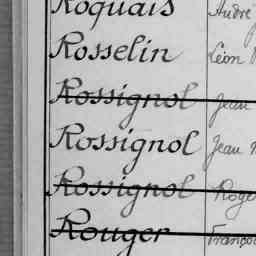 Roquais André
Rosselin Léon
Rossignol Jean
Rossignol Jean
Rossignol Roger
Rouger